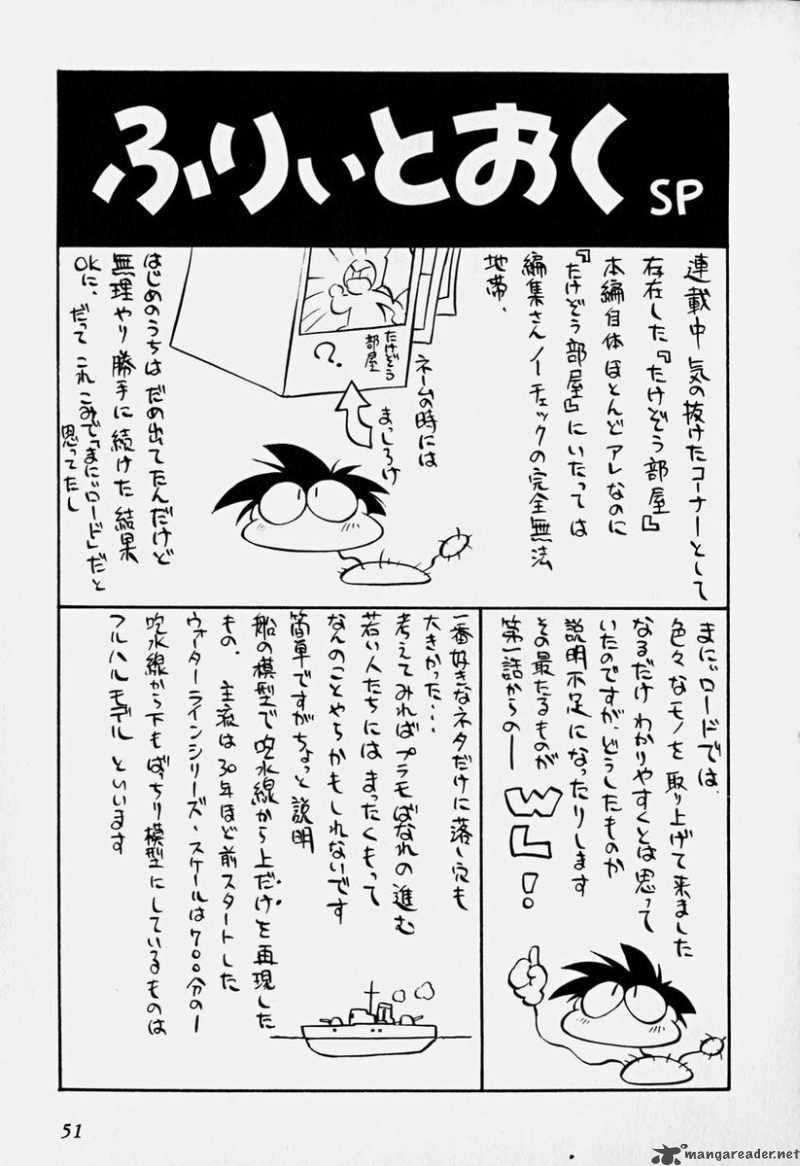 ふりぃとおく SP
連載中 気の抜けたコーナーとして
存在した『たけぞう部屋』
本編自体 ほとんど アレ なのに
『たけぞう部屋』にいたっては
編集さん ノーチェックの完全無法
地帯、
ネームの時には
まっしろけ
たけぞう
部屋
?
はじめのうちは だめ出てたんだけど
無理やり 勝手に 続けた 結果
OKに、
だって これ こみで「まにぃロード」だと
思ってたし
まにぃロードでは、
色々なモノを 取り上げて来ました
なるだけ わかりやすくとは 思って
いたのですが、どうしたものか
説明不足に なったりします
その最たるものが
第一話からの ー
WL!
一番好きなネタだけに 落し穴も
大きかった・・・
考えてみれば プラモばなれの進む
若い人たち には まったくもって
なんのことやら かもしれないです
簡単ですが ちょっと 説明
船の模型で 吃水線から上だけを 再現した
もの。 主流は 30年ほど 前スタートした
ウォーターラインシリーズ・スケールは700分の一
吃水線から下も ばっちり 模型 にしているものは
フルハルモデル といいます
51
mangareader.net